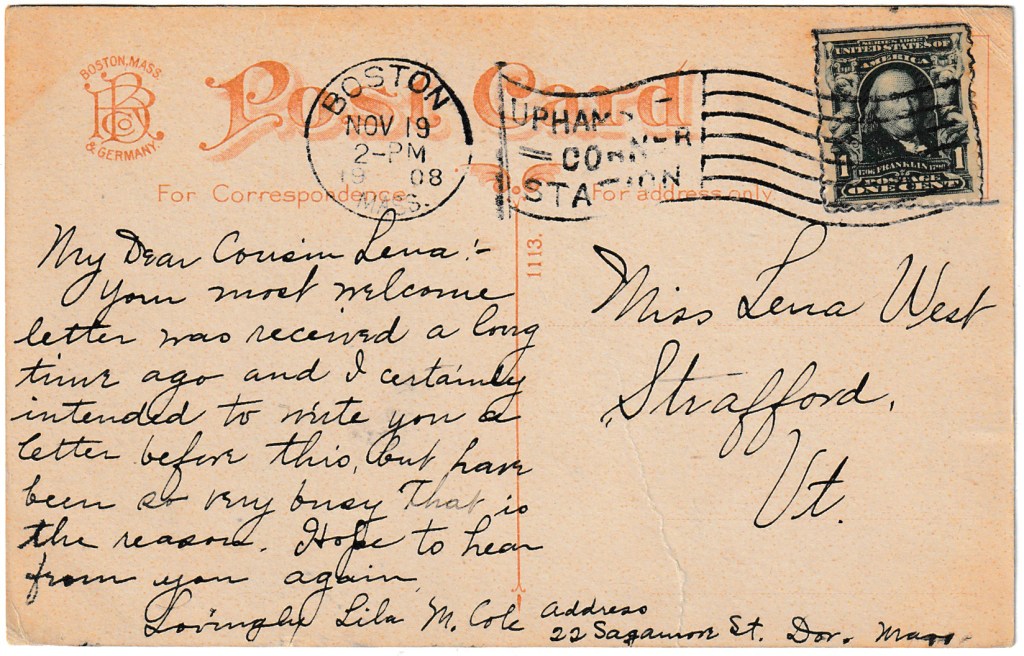 BOSTON, MASS.
RB Co
& GERMANY.
Post Card
BOSTON
NOV 19
2-PM
19 08
MASS.
UPHAM
CORNER
STATION
SERIES 1902
UNITED STATES OF
AMERICA
1706 FRANKLIN 1790
POSTAGE
1 1
ONE CENT
For Correspondence.
For address only.
1113.
My Dear Cousin Lena:-
Your most welcome
letter was received a long
time ago and I certainly
intended to write you a
letter before this, but have
been so very busy That is
the reason. Hope to hear
from you again
Lovingly Lila M. Cole
Address
22 Sagamore St. Dor. Mass
Miss Lena West
Strafford,
Vt.